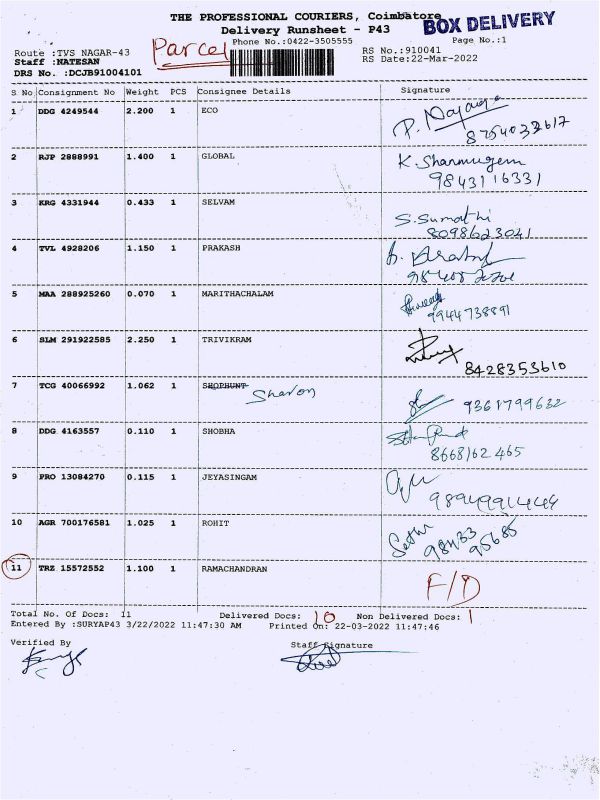 THE PROFESSIONAL COURIERS, Coimbatore
BOX DELIVERY
Delivery Runsheet - P43
Parcel
Phone No.:0422-3505555
Page No.:1
Route :TVS NAGAR-43
RS No.:910041
Staff :NATESAN
RS Date:22-Mar-2022
DRS No. :DCJB91004101
S No Consignment No Weight PCS Consignee Details Signature
1 DDG 4249544 2.200 1 ECO
8754033617
2 RJP 2888991 1.400 1 GLOBAL K. Shanmugem
9843116331
3 KRG 4331944 0.433 1 SELVAM S. Sumathi
8098623041
4 TVL 4928206 1.150 1 PRAKASH
5 MAA 288925260 0.070 1 MARITHACHALAM
9944738891
6 SLM 291922585 2.250 1 TRIVIKRAM
8428353610
7 TCG 40066992 1.062 1 SHOPHUNT Sharon
9361799632
8 DDG 4163557 0.110 1 SHOBHA
8668162465
9 PRO 13084270 0.115 1 JEYASINGAM
10 AGR 700176581 1.025 1 ROHIT
98433 95685
11 TRZ 15572552 1.100 1 RAMACHANDRAN F/D
Total No. Of Docs: 11 Delivered Docs: 10 Non Delivered Docs: 1
Entered By :SURYAP43 3/22/2022 11:47:30 AM Printed On: 22-03-2022 11:47:46
Verified By Staff Signature